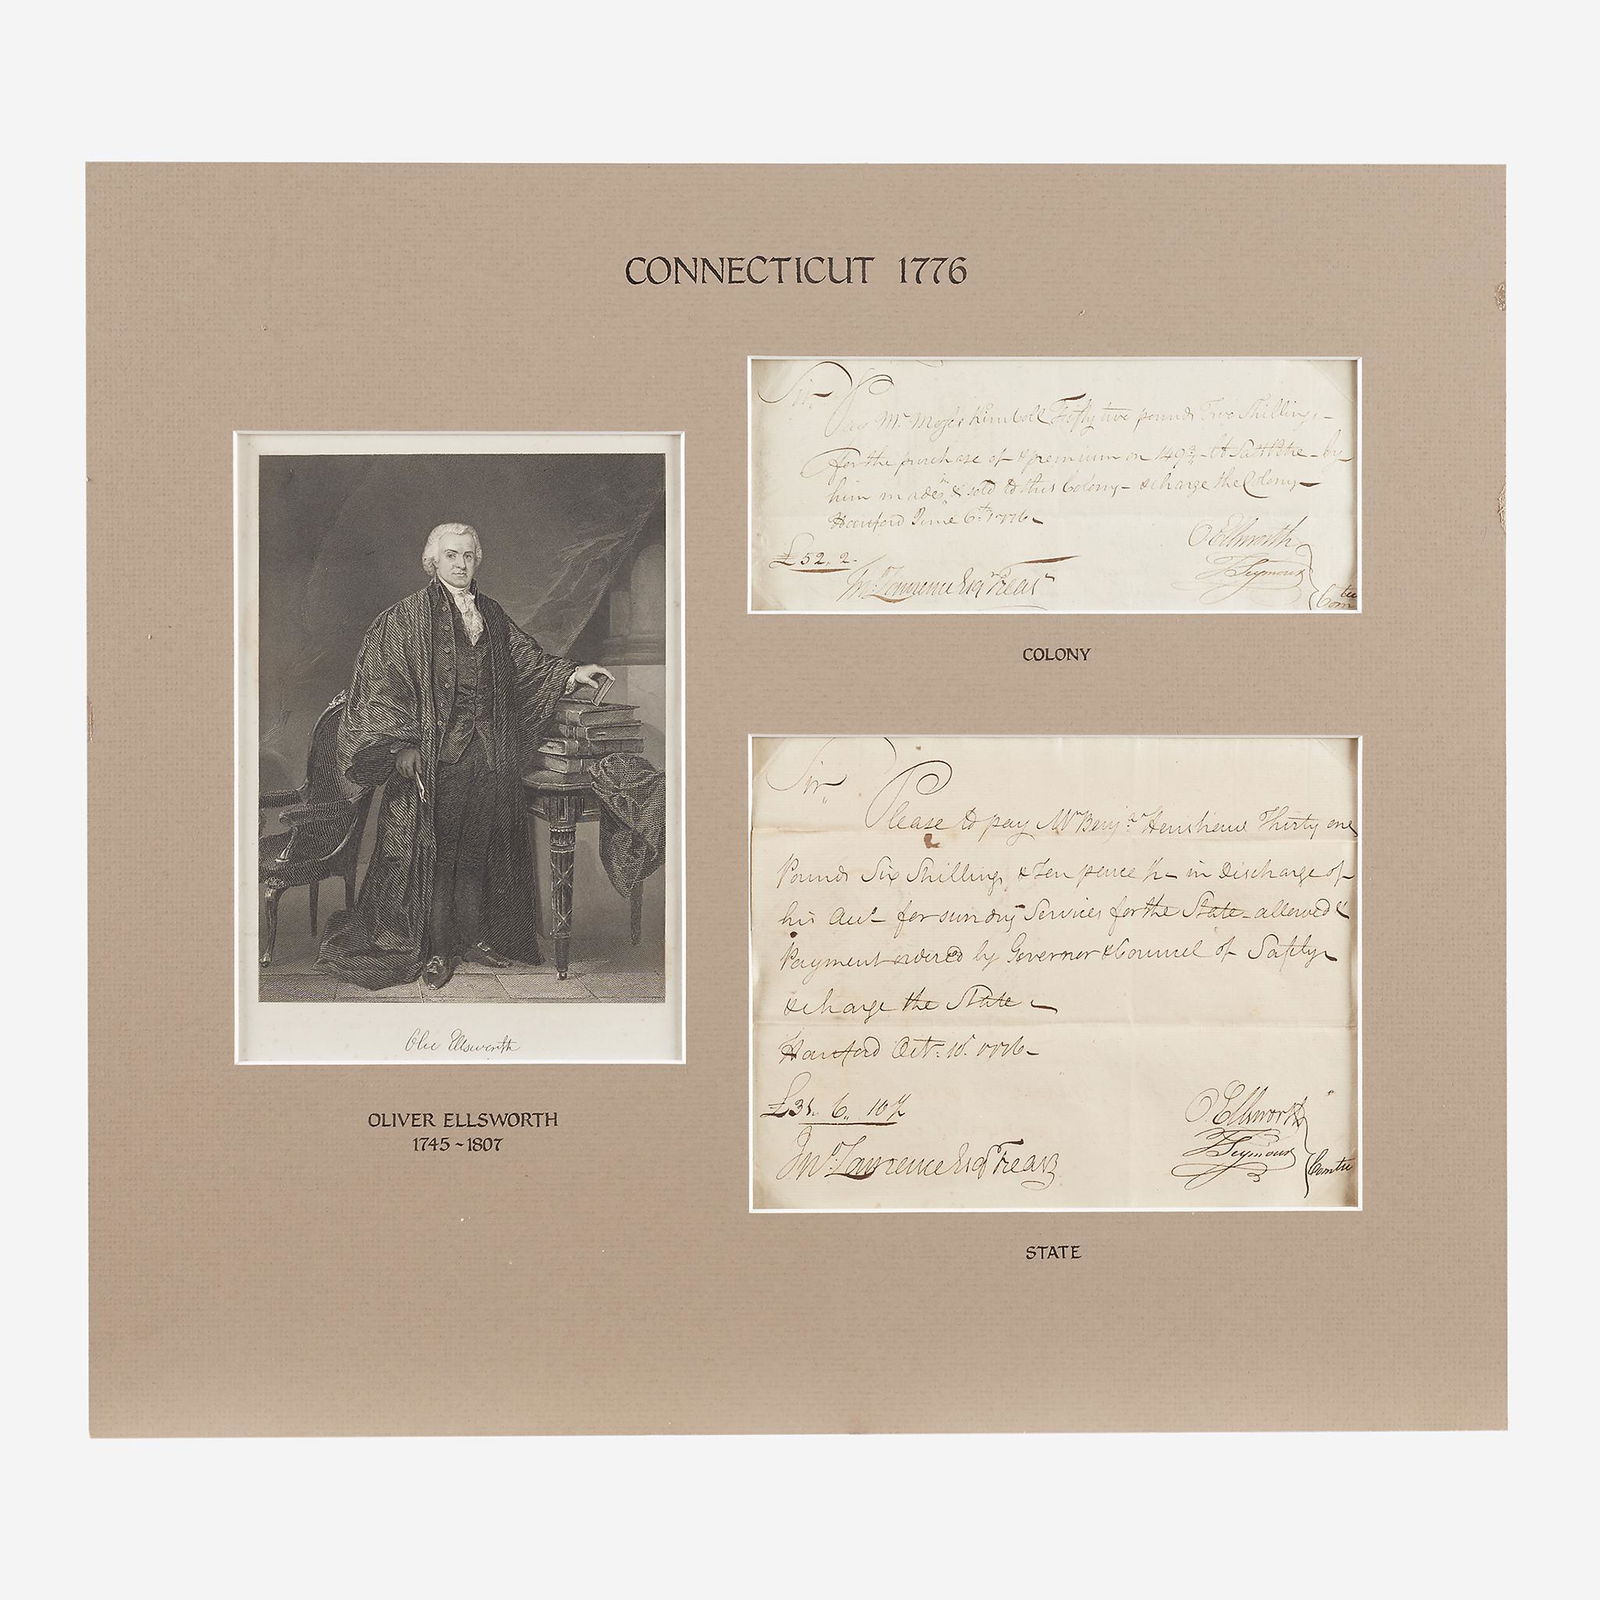 CONNECTICUT 1776
Sir
Pay Mr. Moses Kimball Fifty two pounds Two Shillings –
for the purchase of & premium on 149¾ lb Salt Petre – by
him made, & sold to this Colony – & charge the Colony –
Hartford June 6th. 1776 –
£52, 2 –
O Ellsworth
T Seymour
Comtee
Jno. Lawrence Esqr Treasr
COLONY
Sir
Please to pay Mr Benjn. Henshaw Thirty one
Pounds Six Shillings & Ten pence ½ – in discharge of
his Acct for sundry Services for the State – allowed &
Payment ordered by Governor & Council of Safety
& charge the State –
Hartford Octr. 10. 1776 –
£31. 6. 10½
O Ellsworth
T Seymour
Comtee
Jno. Lawrence Esqr Treasr
STATE
Oliv Ellsworth
OLIVER ELLSWORTH
1745 ~ 1807